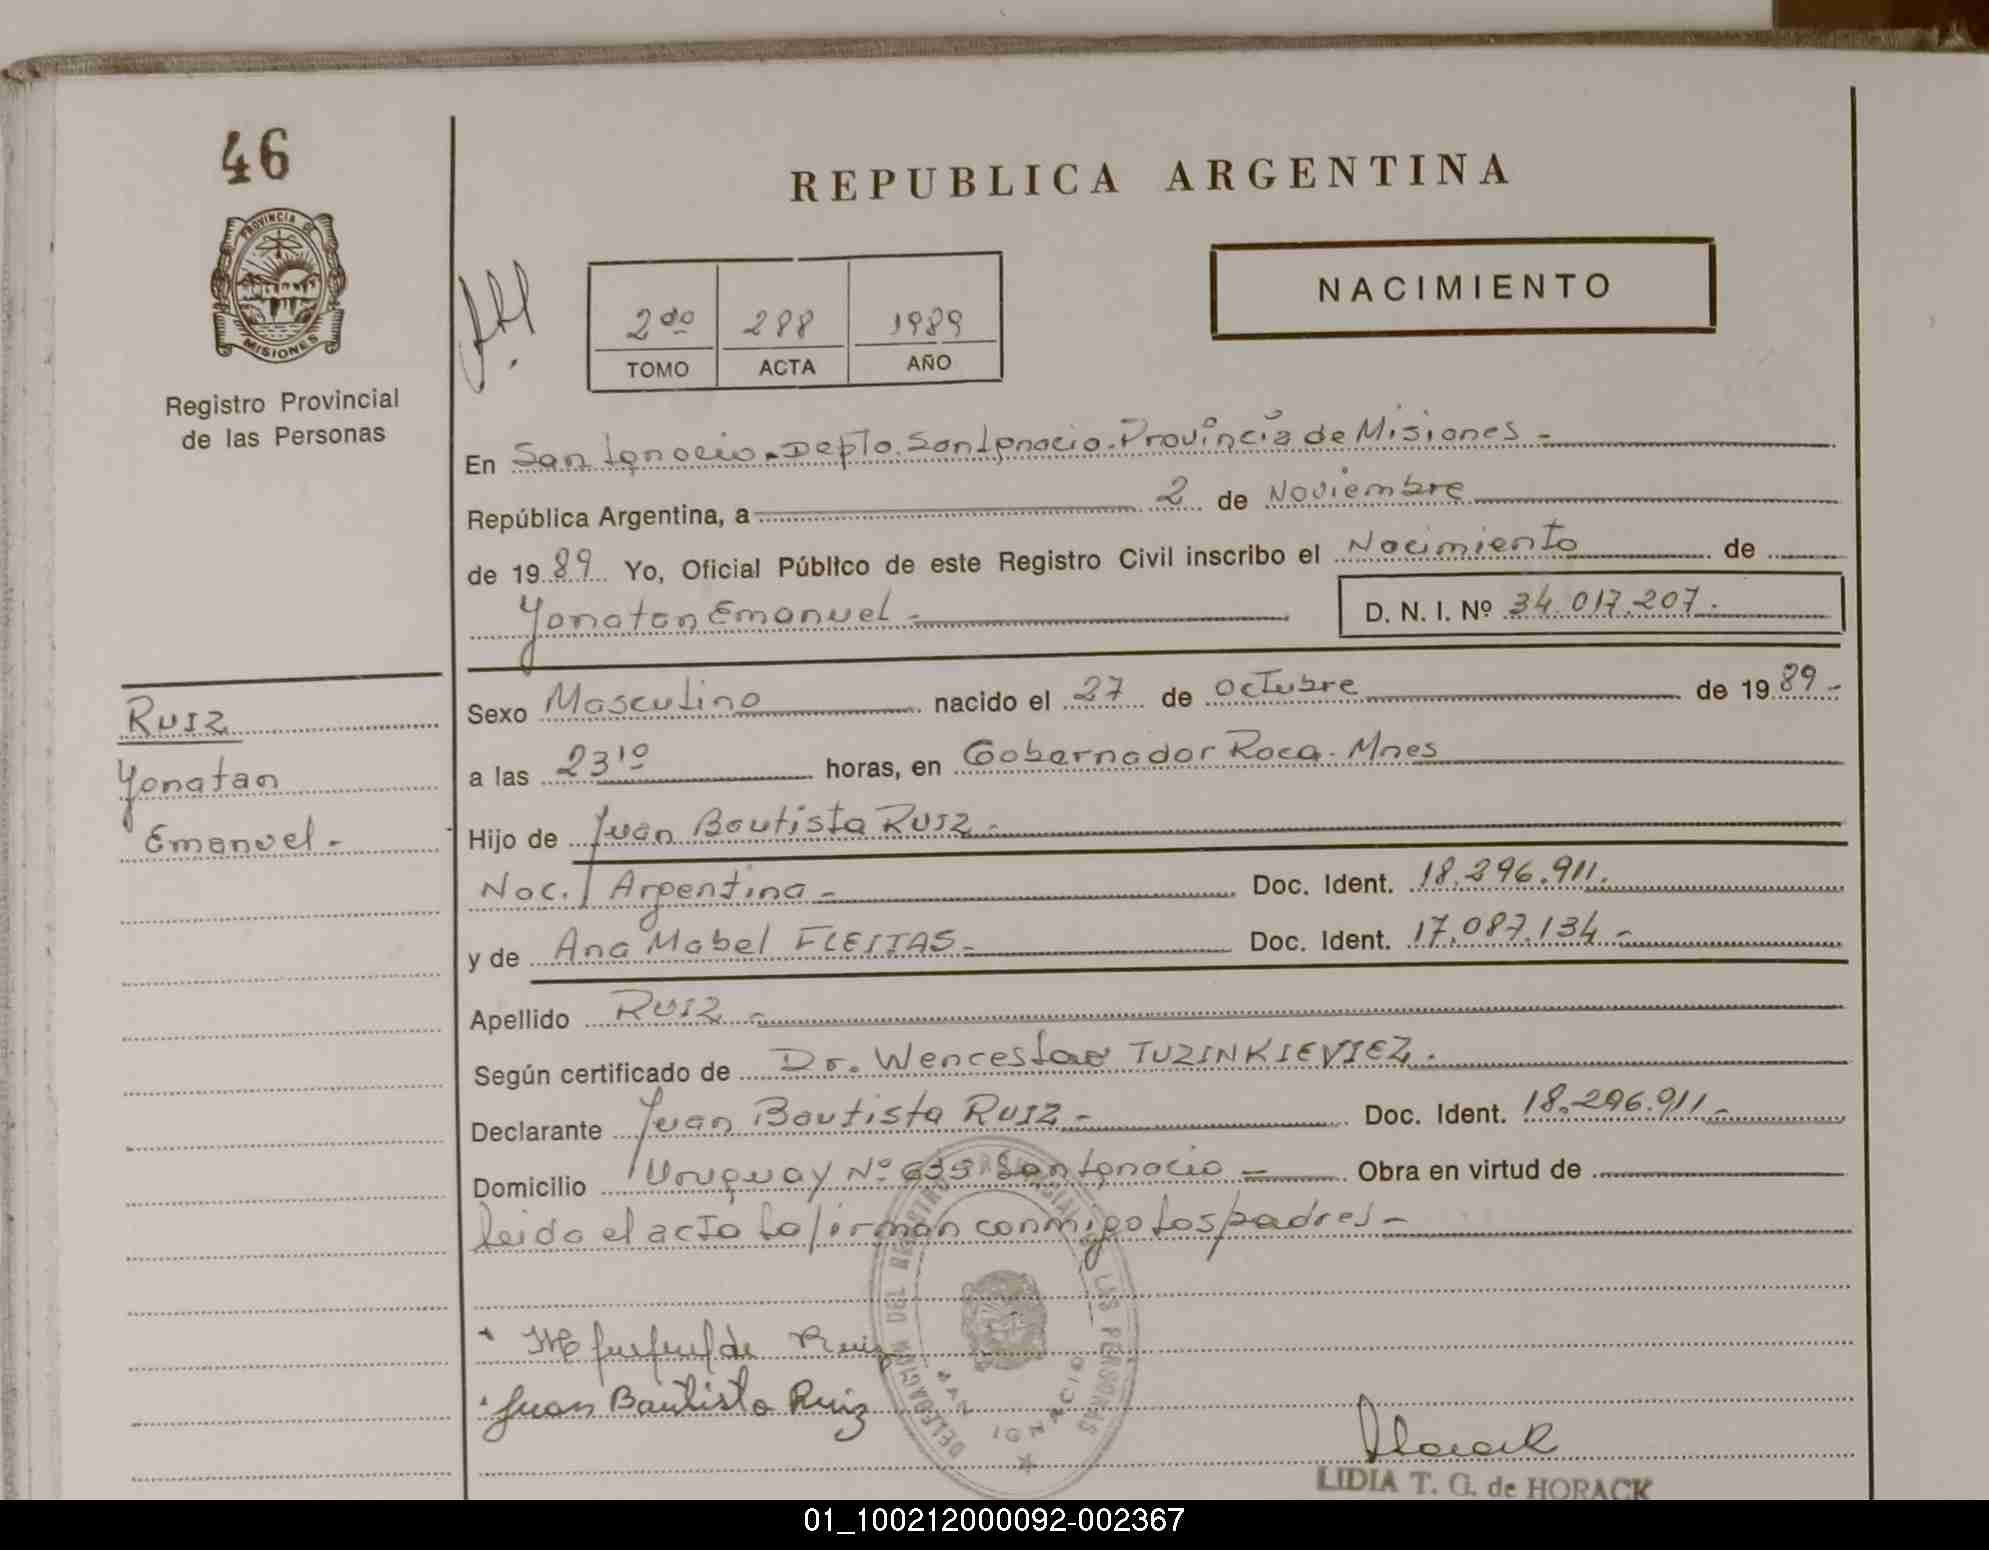 46
PROVINCIA DE
MISIONES
Registro Provincial
de las Personas
REPUBLICA ARGENTINA
NACIMIENTO
2do 288 1989
TOMO ACTA AÑO
En San Ignacio. Depto. San Ignacio. Provincia de Misiones -
República Argentina, a 2 de Noviembre
de 1989 Yo, Oficial Público de este Registro Civil inscribo el Nacimiento de
Yonatan Emanuel - D. N. I. Nº 34.017.207.
RUIZ
Yonatan
Emanuel -
Sexo Masculino nacido el 27 de Octubre de 1989 -
a las 23 10 horas, en Gobernador Roca. Mnes
Hijo de Juan Bautista RUIZ -
Nac. Argentina - Doc. Ident. 18.296.911.
y de Ana Mabel FLEITAS - Doc. Ident. 17.087.134 -
Apellido RUIZ -
Según certificado de Dr. Wenceslao TUZINKIEVIEZ.
Declarante Juan Bautista RUIZ - Doc. Ident. 18.296.911 -
Domicilio Uruguay Nº 635 San Ignacio - Obra en virtud de
leido el acta la firman conmigo los padres -
de Ruiz
Juan Bautista Ruiz
DELEGACION DEL REGISTRO PROVINCIAL LAS PERSONAS
SAN IGNACIO
Horack
LIDIA T. G. de HORACK
01_100212000092-002367